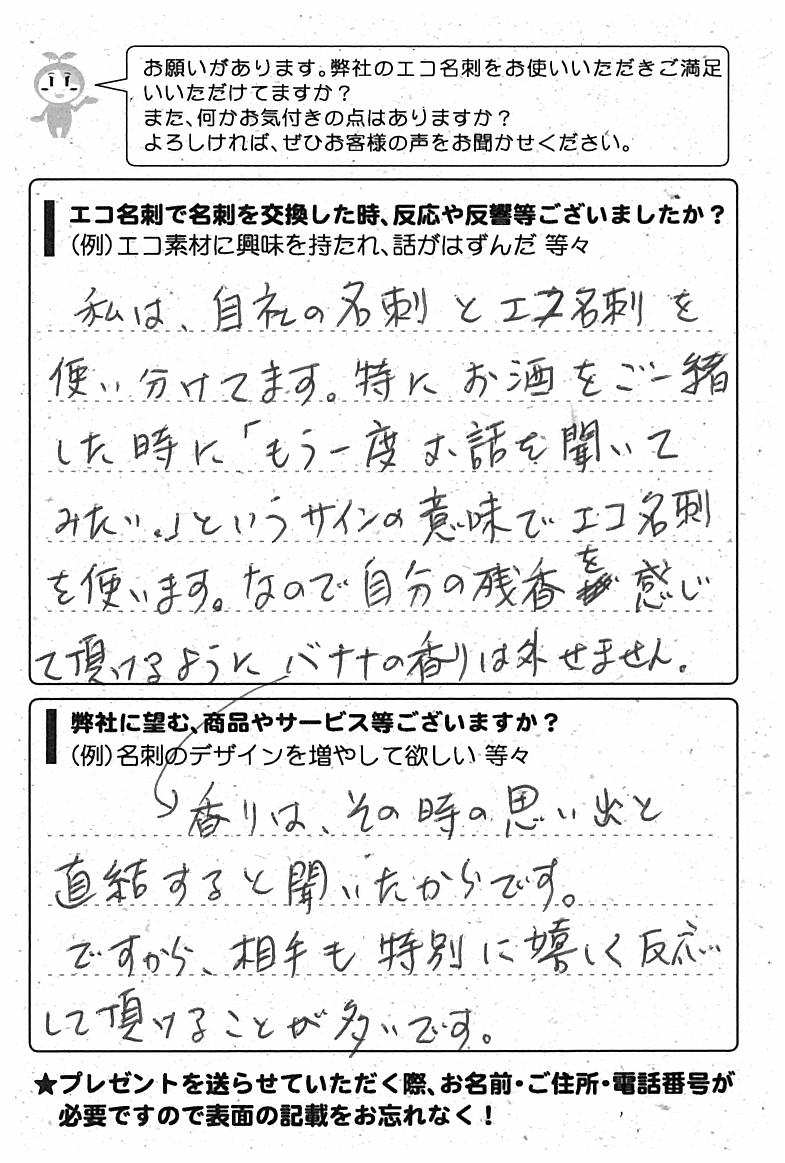 お願いがあります。弊社のエコ名刺をお使いいただきご満足
いいただけてますか？
また、何かお気付きの点はありますか？
よろしければ、ぜひお客様の声をお聞かせください。
エコ名刺で名刺を交換した時、反応や反響等ございましたか？
（例）エコ素材に興味を持たれ、話がはずんだ 等々
私は、自社の名刺とエコ名刺を
使い分けてます。特にお酒をご一緒
した時に「もう一度お話を聞いて
みたい。」というサインの意味でエコ名刺
を使います。なので自分の残香を感じ
て頂けるようにバナナの香りは外せません。
弊社に望む、商品やサービス等ございますか？
（例）名刺のデザインを増やして欲しい 等々
香りは、その時の思い出と
直結すると聞いたからです。
ですから、相手も特別に嬉しく反応
して頂けることが多いです。
★プレゼントを送らせていただく際、お名前・ご住所・電話番号が
必要ですので表面の記載をお忘れなく！